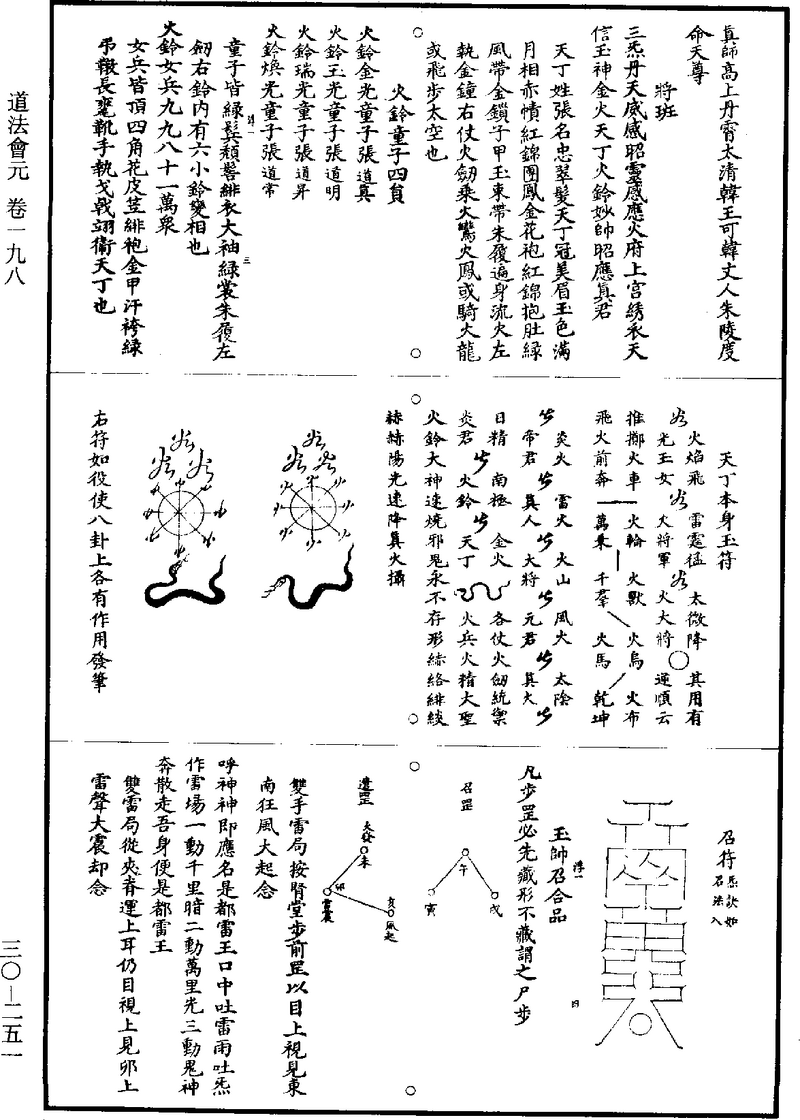 道法會元 卷一九八
三〇—二五一
真師高上丹霄太清韓王可韓丈人朱陵度
命天尊
將班
三炁丹天威感昭靈感應火府上宮綉衣天
信玉神金火天丁火鈴妙帥昭應真君
天丁姓張名忠翠髮天丁冠美眉玉色滿
月相赤幘紅錦團鳳金花袍紅錦抱肚綠
風帶金鎖子甲玉束帶朱履遍身流火左
執金鐘右仗火劒乘火鸞火鳳或騎火龍
或飛步太空也
火鈴童子四員
火鈴金光童子張道真
火鈴玉光童子張道明
火鈴瑞光童子張道昇
火鈴煥光童子張道常
童子皆綠鬂頳髻緋衣大袖綠裳朱履左
劒右鈴內有六小鈴變相也
火鈴女兵九九八十一萬衆
女兵皆頂四角花皮荳緋袍金甲汗袴綠
弔鞾長鞾手執戈戟翊衞天丁也
天丁本身玉符
火焰飛 雷霆猛 太微降 其用有
光玉女 火將軍 火大將 逆順云
推擲火車 火輪 火獸 火鳥 火布
飛火前奔 萬乘 千羣 火馬 乾坤
炎火 雷火 火山 風火 太陰
帝君 真人 大將 元君 真火
日精 南極 金火 各仗火劒統禦
炎君 火鈴 天丁 火兵火精大聖
火鈴大神速燒邪鬼永不存形絲絡緋綾
赫赫陽光速降真火攝
右符如役使八卦上各有作用發筆
召符 炁訣如
召法入
玉帥召合品
凡步罡必先藏形不藏謂之尸步
召罡
午
寅
戌
遣罡
火發
未
卯
雷震
亥
風起
雙手雷局按腎堂步前罡以目上視見東
南狂風大起念
呼神神即應名是都雷王口中吐雷雨吐炁
作雷場一動千里暗二動萬里光三動鬼神
奔散走吾身便是都雷王
雙雷局從夾脊運上耳仍目視上見卯上
雷聲大震却念